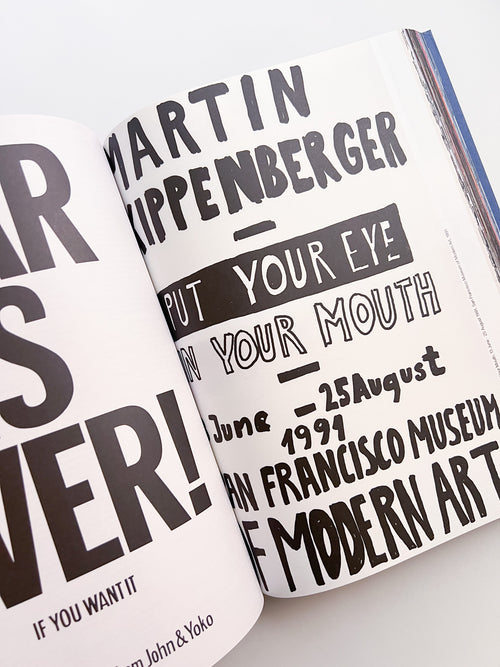 AR
S
VER!
IF YOU WANT IT
om John & Yoko
MARTIN
KIPPENBERGER
PUT YOUR EYE
IN YOUR MOUTH
June – 25 August
1991
SAN FRANCISCO MUSEUM
OF MODERN ART